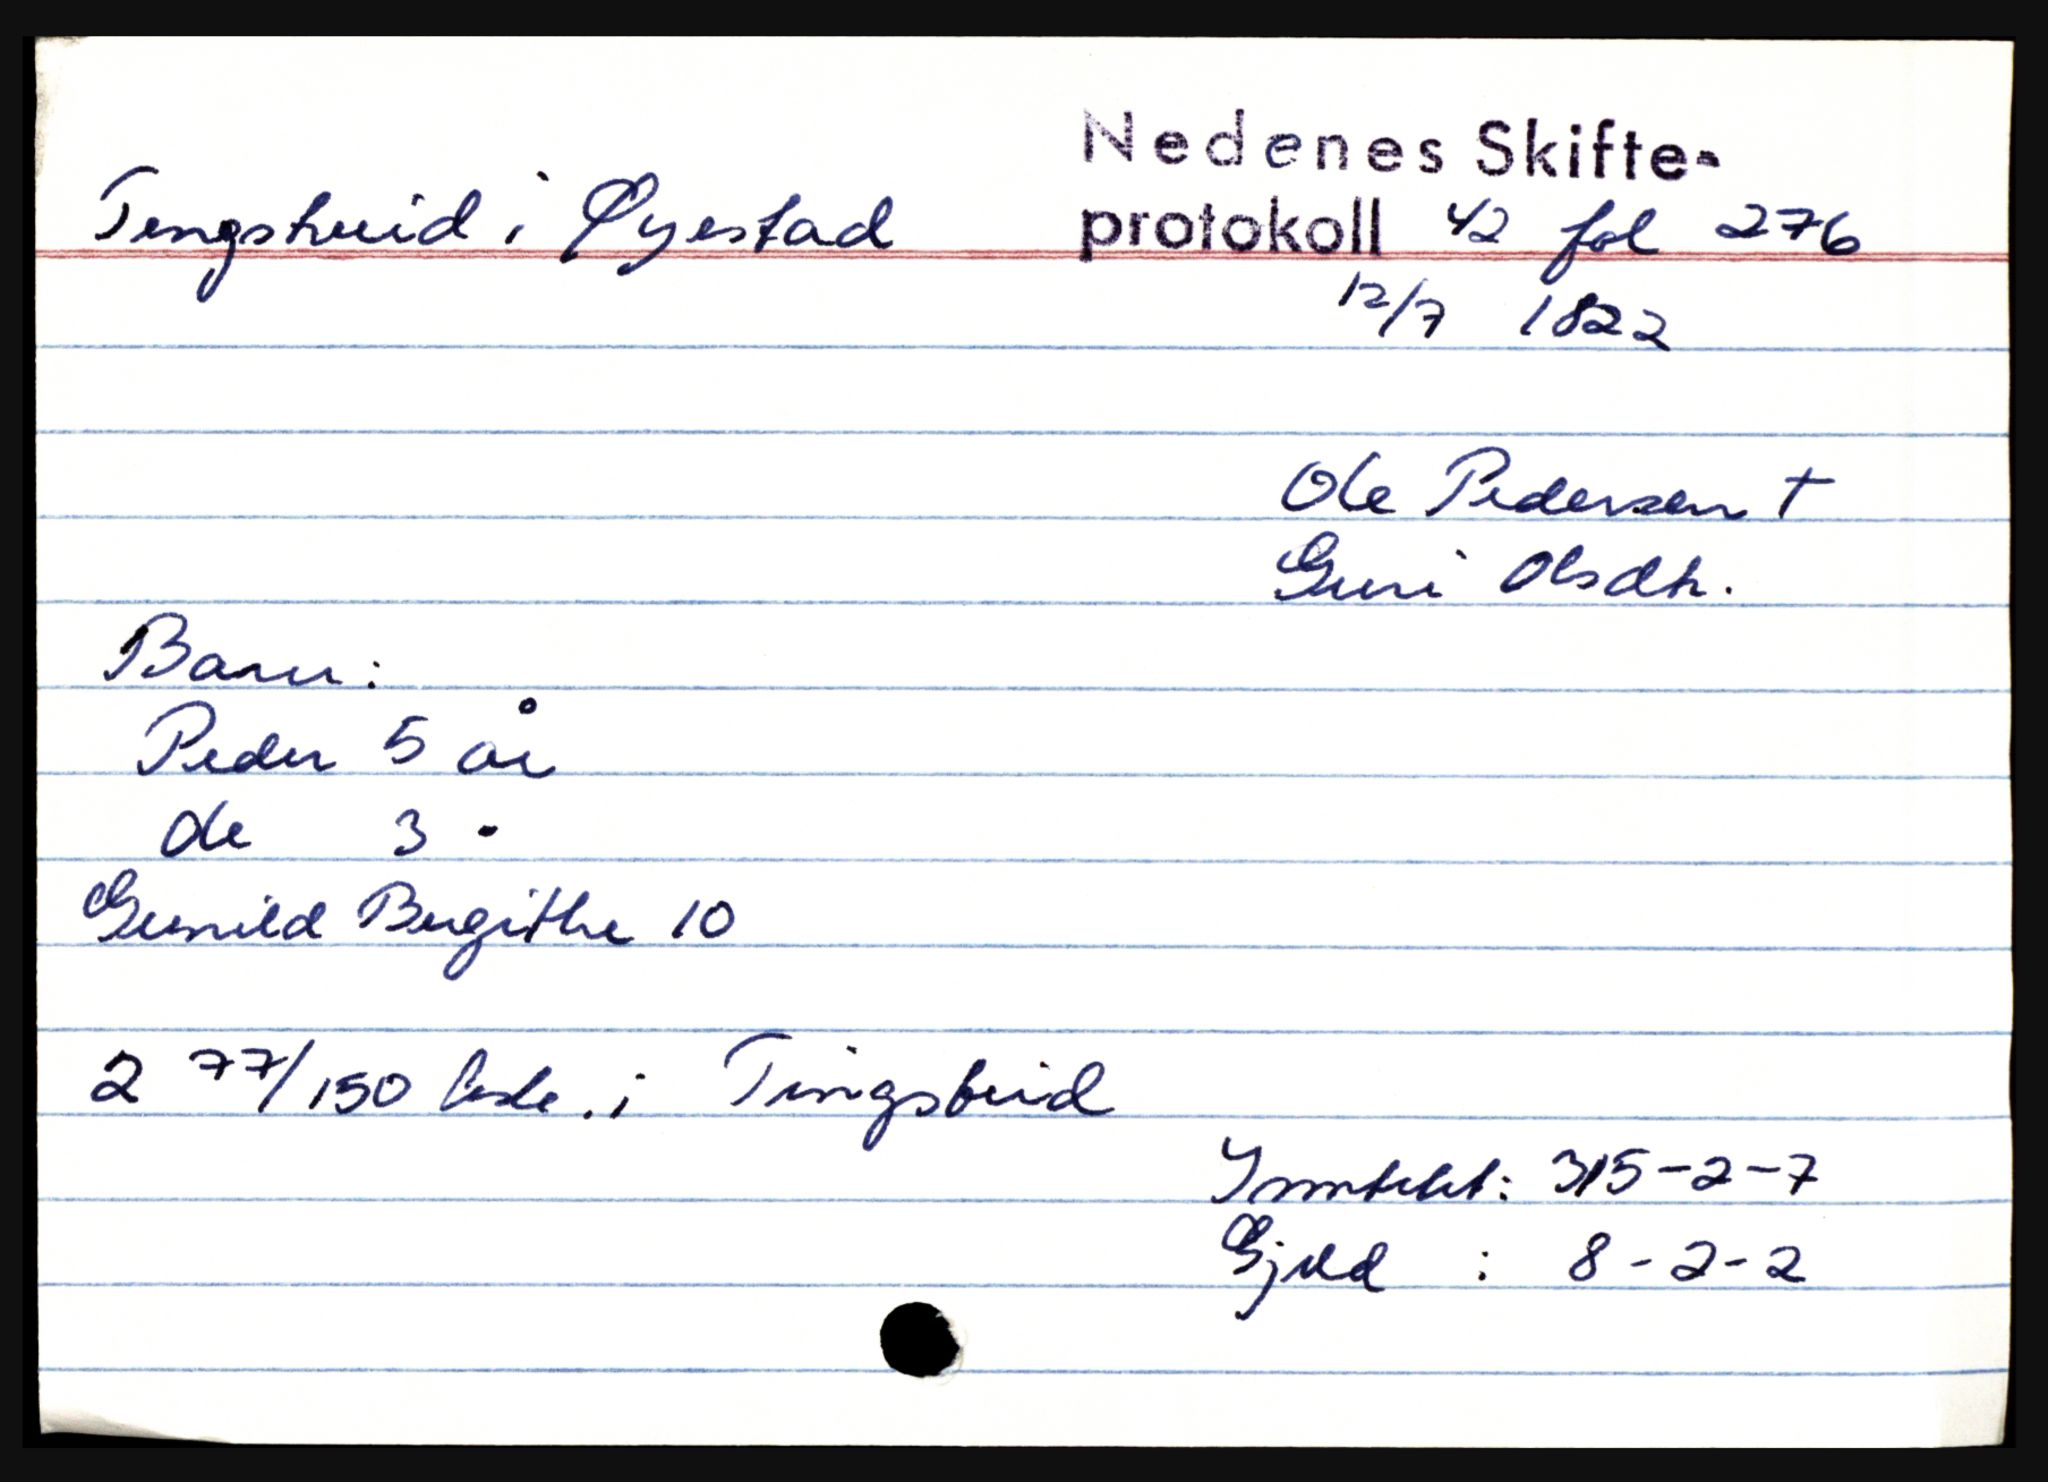 Tingstveid i Øyestad
Nedenes Skifte-
protokoll 42 fol 276
12/7 1822
Ole Pedersen †
Guri Olsdtr.
Barn:
Peder 5 år
Ole 3 -
Gunild Birgithe 10
2 77/150 i Tingstveid
Inntekt: 315-2-7
Gjeld : 8-2-2